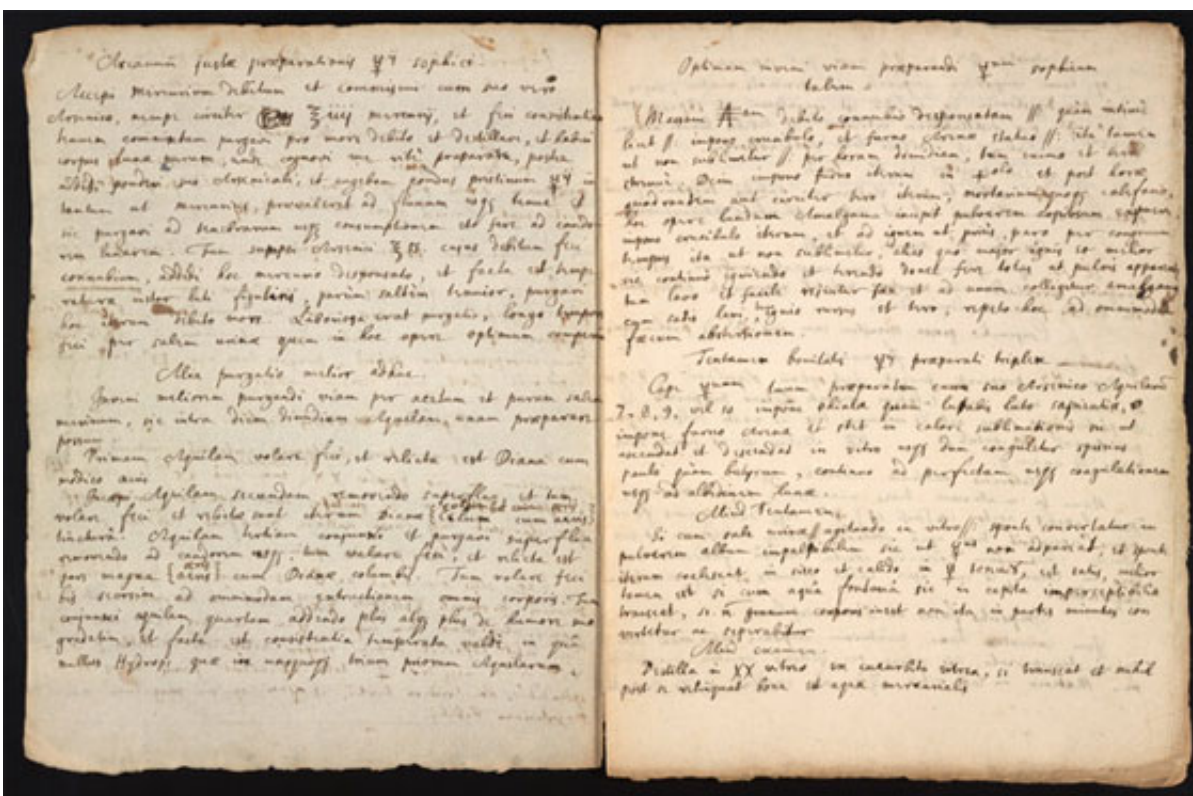 Arcanum justæ præparationis ☿ii sophici.
Accepi mercurium debitum et commiscui cum suo vero
Arsenico, nempe circiter ℥ iiij mercurii, et feci consistentia
tenuem commixtam purgavi pro more debito et distillavi, et habui
corpus Lunæ purum, unde cognovi me rite præparasse, postea
ponderi suo Arsenicali, et augebam pondus pristinum ☿ii in
tantum ut mercurius prævaleret ad
sic purgavi ad nigredinis usq consumptionem et fere ad cando
rem Lunarem. Tum sumpsi Arsenici ℥ ss. cujus debitum feci
connubium, addidi hoc mercurio desponsato, et facta est tempe
ratura instar luti figulini, parum saltem tenuior, purgavi
hoc iterum debito more. Laboriosa erat purgatio, longo tempore
feci per salem urinæ quem in hoc opere optimum comperi
Alia purgatio melior adhuc.
Inveni meliorem purgandi viam per acetum et purum salem
marinum, sic intra diem dimidium Aquilam unam præparare
possum
Primam Aquilam volare feci, et relicta est Diana cum
modico æris
Incepi Aquilam secundam removendo superflua, et tum
volare feci et relictæ sunt iterum Dianæ
tinctura. Aquilam tertiam conjunxi et purgavi superflua
removendo ad candorem usq, tum volare feci, et relicta est
pars magna [æris] cum Dianæ columbis. Tum volare feci
bis seorsim ad omnimodam extractionem omnis corporis. Tum
conjunxi aquilam quartam addendo plus aliq plus de humore suo
gradatim, et facta est consistentia temperata valde, in qua
nullus Hydrops, quæ in unaquaq trium priorum Aquilarum.
Optimam inveni viam præparandi ☿um sophicum
talem.
Massam debito connubio desponsatam // quam intime
fieri // impone crucibulo, et furno Arenæ statue // ita tamen
ut non sublimetur // per horam dimidiam, tum exime et tere
strenue. Dein impone furno iterum in et post horæ
quadrantem aut circiter tere iterum, mortarium quoq calefiat,
hoc opere tandem Amalgama incipit pulverem copiosum expuere,
impone crucibulo iterum, et ad ignem ut prius, pone per congruum
tempus ita ut non sublimetur, alias quo major ignis eo melior
sic continuo igniendo et terendo donec fere totus ut pulvis appareat
tum lava et facile rejicitur fæx et ad unum colligitur amalgama
cum satis lavi, ignis rursus et tere, repete hoc ad omnimodam
fæcum abstersionem.
Tentamen bonitatis ☿ii præparati triplex
Cape ☿um tuum præparatum cum suo Arsenico Aquilarum
7. 8. 9. vel 10 impone phialæ quam lutabis luto sapientiæ,
impone furno Arenæ et stet in calore sublimationis sic ut
ascendat et descendat in vitro usq dum coaguletur spissius
paulo quam butyrum, continuo ad perfectam usq coagulationem
usq ad albedinem Lunæ.
Aliud Tentamen
Si cum sale urinæ // agitando in vitro // sponte convertatur in
pulverem album impalpabilem sic ut ☿us non appareat, et sponte
iterum coalescat in sicco et calido in ☿ tenuem, est satis, melior
tamen est si cum aqua fontana sic in capita imperceptibilia
transeat, si n granum corporis inest non ita in partes minutas con
vertetur ac separabitur
Aliud examen.
Distilla in vitreo ex cucurbita vitrea, si transeat et nihil
post se relinquat bona est aqua mercurialis